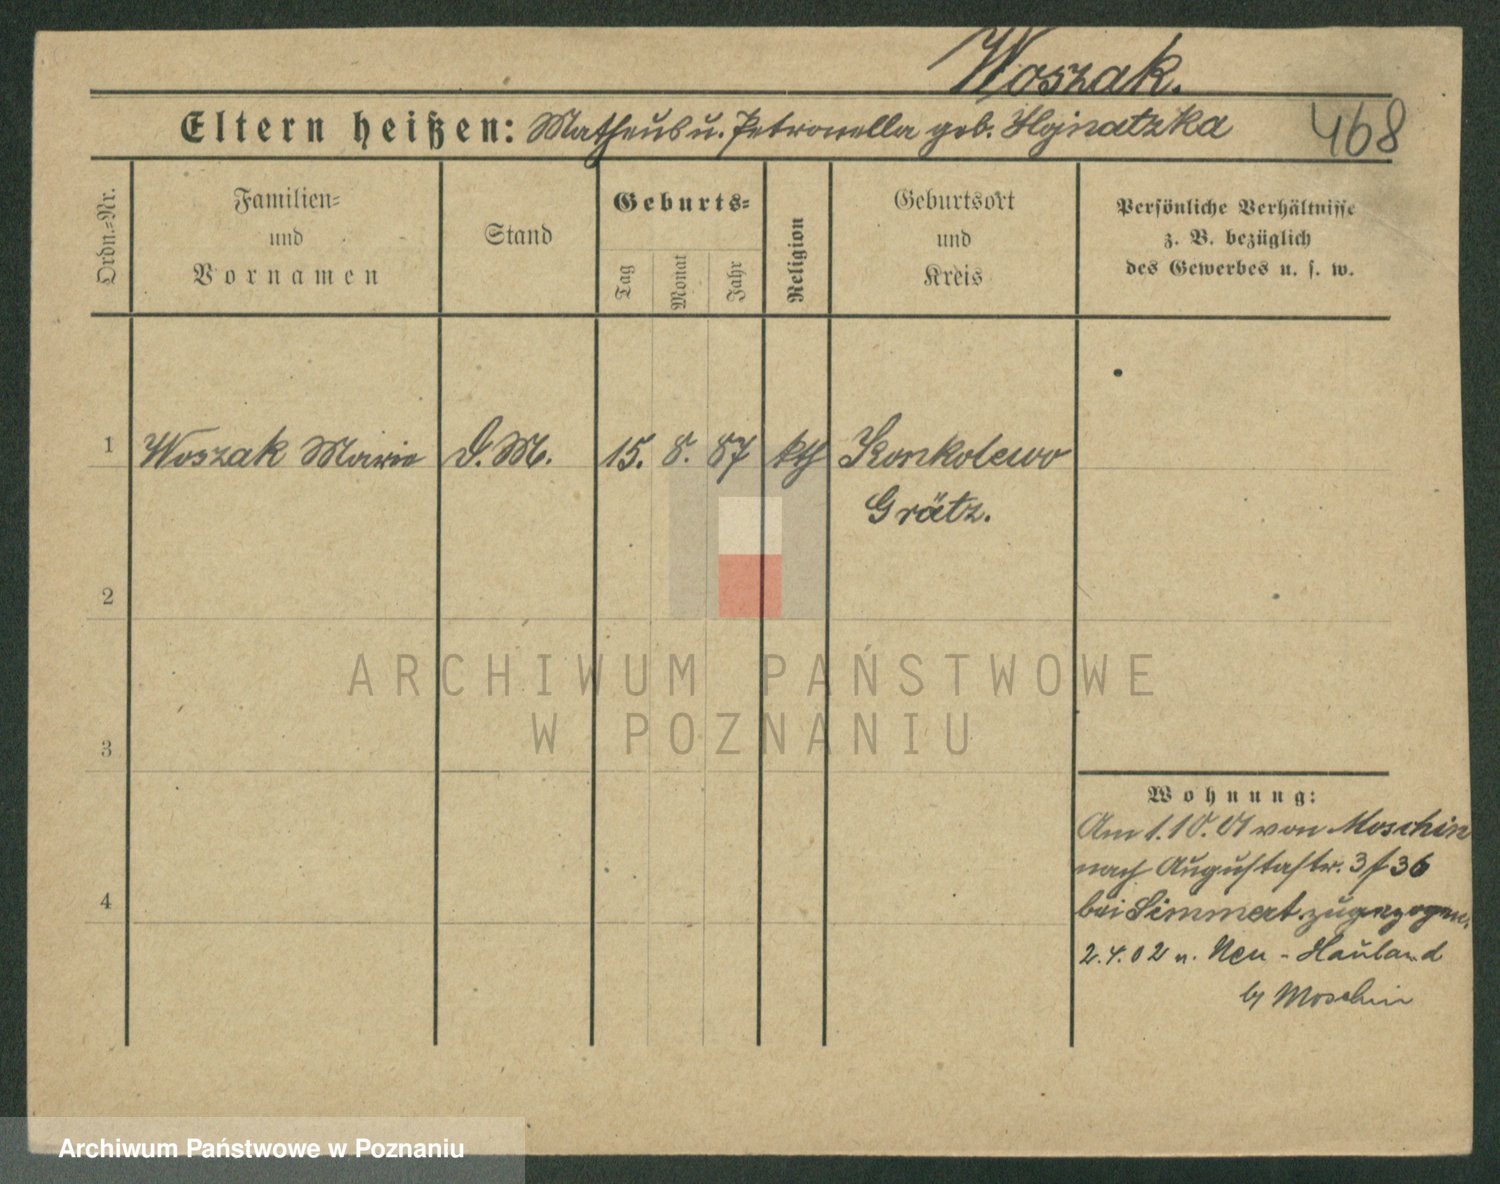 Woszak.
468
Eltern heißen: Matheus u. Petronella geb.
Ordn.=Nr.
Familien=
und
Vornamen
Stand
Geburts=
Tag
Monat
Jahr
Religion
Geburtsort
und
Kreis
Persönliche Verhältnisse
z. B. bezüglich
des Gewerbes u. s. w.
1 Woszak Marie D. M. 15. 8. 87 kth Konkolewo
Grätz.
2
3
4
Wohnung:
Am 1.10. 01 von Moschin
nach Augustastr. 3 f 36
bei Simmert zugezogen.
2.4.02 n. Neu - Hauland
b/ Moschin
ARCHIWUM PAŃSTWOWE
W POZNANIU
Archiwum Państwowe w Poznaniu